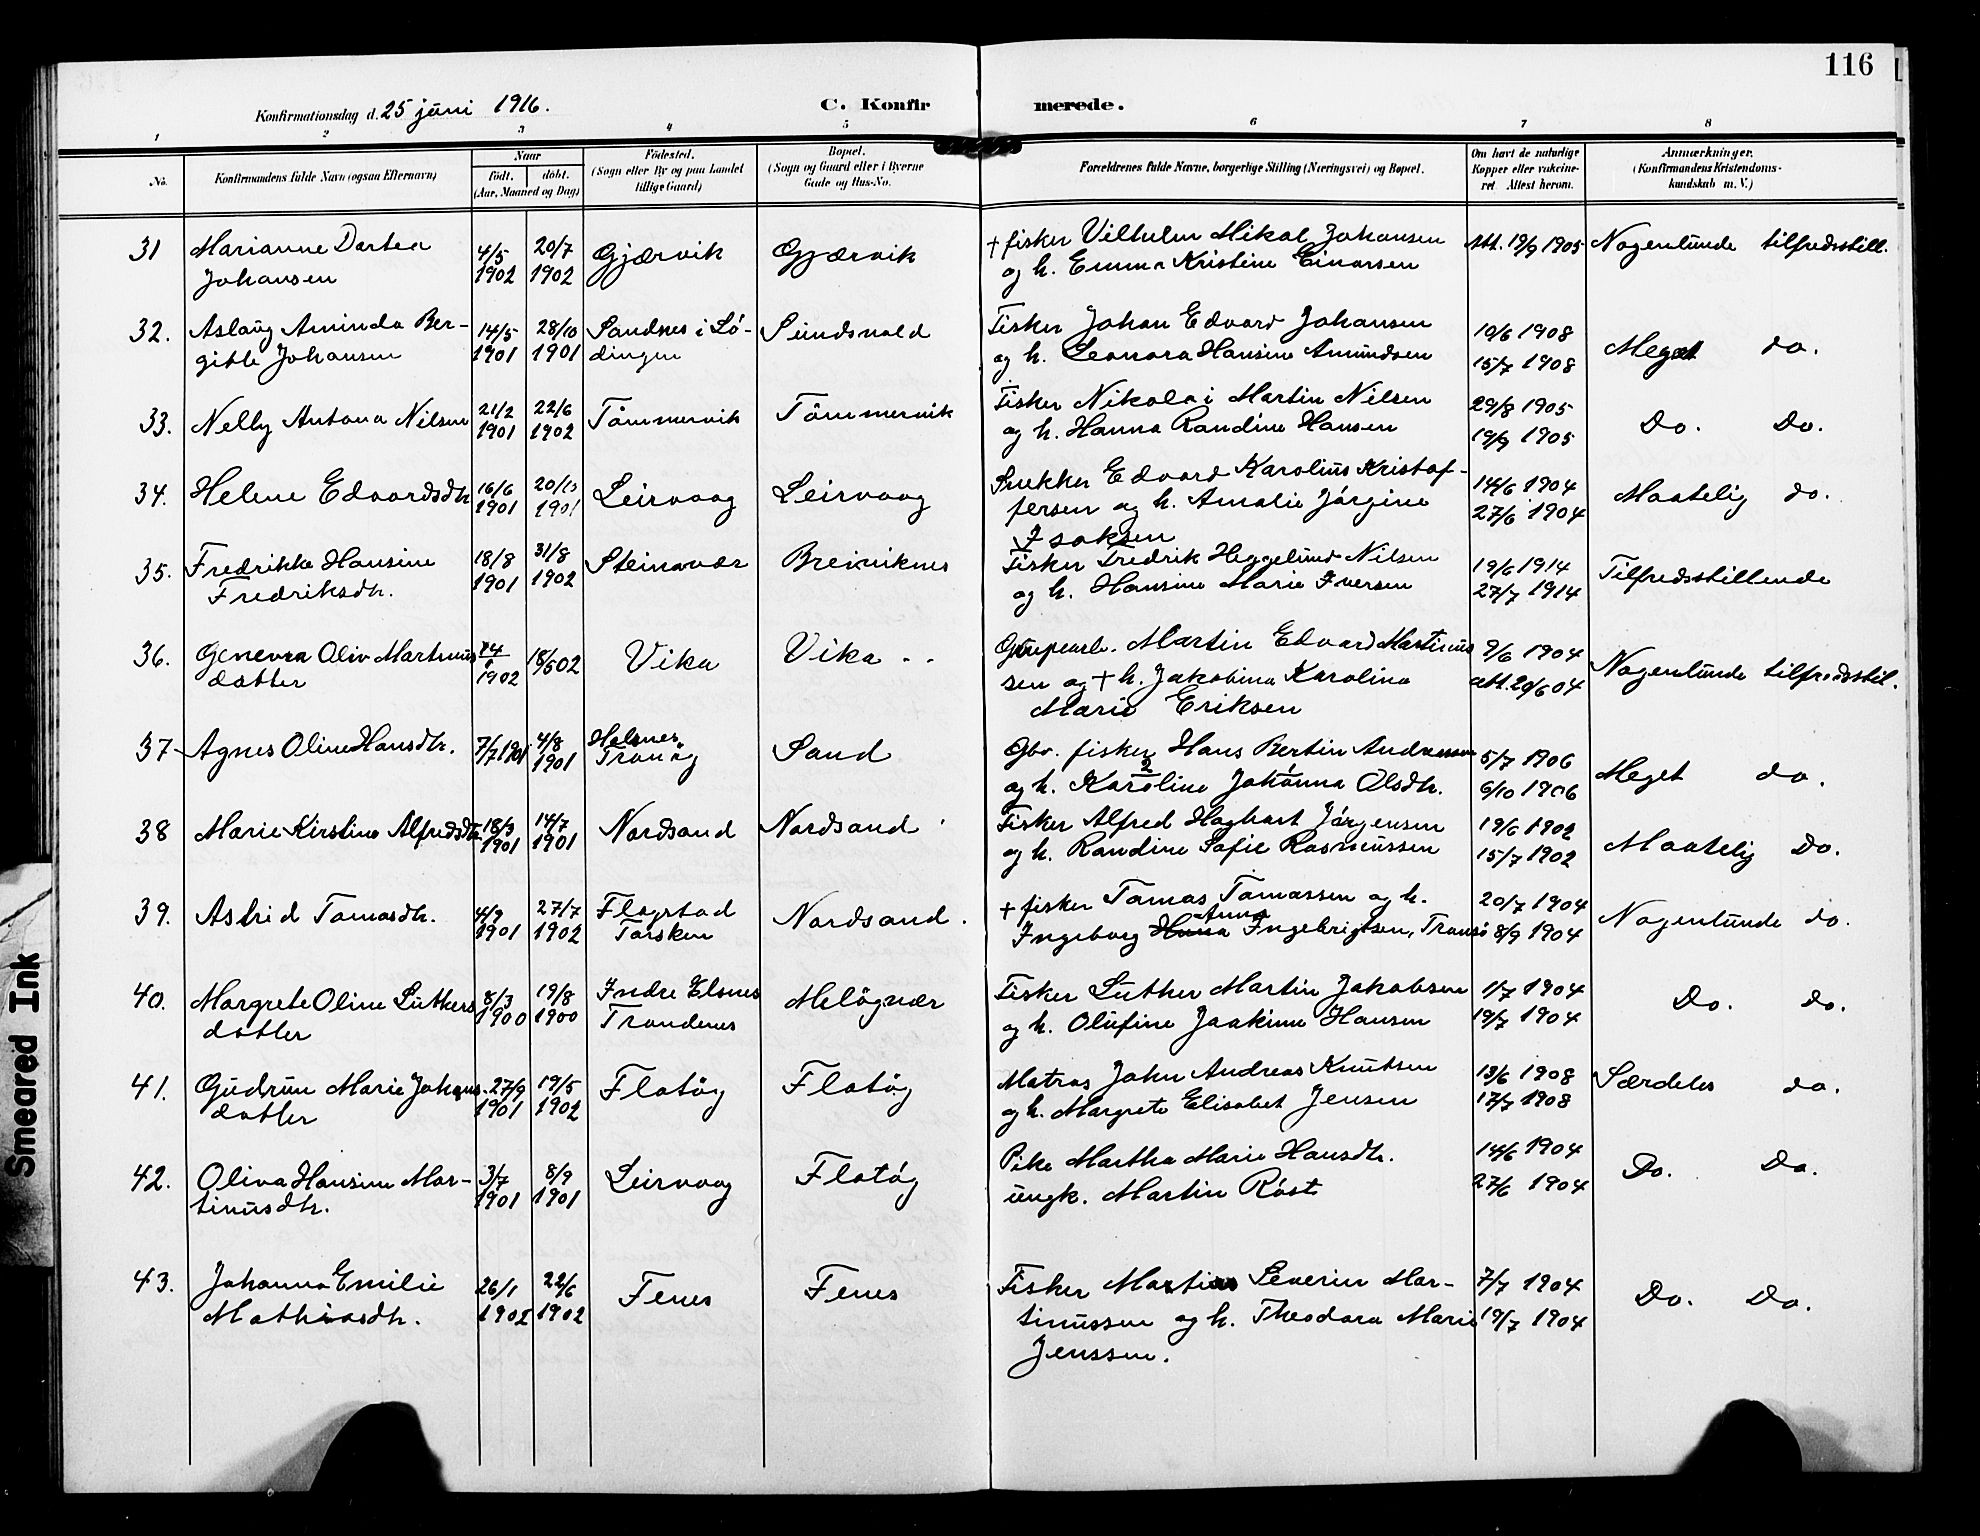 116
Konfirmationsdag d. 25 juni 1916.
C. Konfirmerede.
1 2 3 4 5 6 7 8
No.
Konfirmandens fulde Navn (ogsaa Efternavn)
Naar
født. døbt.
(Aar, Maaned og Dag)
Fødested.
(Sogn eller By og paa Landet
tillige Gaard)
Bopæl.
(Sogn og Gaard eller i Byerne
Gade og Hus-No.
Forældrenes fulde Navne, borgerlige Stilling (Næringsvei) og Bopæl.
Om havt de naturlige
Kopper eller vakcine-
ret Attest herom.
Anmærkninger.
(Konfirmandens Kristendoms-
kundskab m. V.)
31 Marianne Dortea 4/5 20/7 Gjærvik Gjærvik † fisker Vilhelm Mikal Johansen Att. 19/9 1905 Nogenlunde tilfredsstill.
Johansen 1902 1902 og h. Emma Kristine Einarsen
32. Aslaug Aminda Ber- 14/5 28/10 Sandnes i Lö- Sundsvold Fisker Johan Edvard Johansen 19/6 1908 Meget do.
gitte Johansen 1901 1901 dingen og h. Leonora Hansine Amundsen 15/7 1908
33. Nelly Antona Nilsen 21/2 22/6 Tömmervik Tömmervik Fisker Nikolai Martin Nilsen 29/8 1905 Do. Do.
1901 1902 og h. Hanna Randine Hansen 19/9 1905
34. Helene Edvardsdtr 16/6 20/10 Leirvaag Leirvaag Snekker Edvard Karolius Kristof- 14/6 1904 Maatelig do.
1901 1901 fersen og h. Amalie Jörgine 27/6 1904
Isaksen
35. Fredrikke Hansine 18/8 31/8 Steinavær Breiviknes Fisker Fredrik Heggelund Nilsen 19/6 1914 Tilfredsstillende
Fredriksdtr. 1901 1902 og h. Hansine Marie Iversen 27/7 1914
36. Genevra Oliv Martinus 1902 18/5 02 Vika Vika Martin Edvard Martinus 9/6 1904 Nogenlunde tilfredsstil.
datter sen og † h. Jakobina Karolina att. 20/6 04
Marie Eriksen
37 Agnes Oline Hansdtr. 7/7 1901 4/8 Sand Gbr. fisker Hans Bertin Andreassen 5/7 1906 Meget do.
1901 Tranöy og h. Karoline Johanna Olsdtr. 6/10 1906
38 Marie Kirstine Alfredsdtr 18/3 14/7 Nordsand Nordsand Fisker Alfred Haghart Jörgensen 19/6 1902 Maatelig Do.
1901 1901 og h. Randine Sofie Rasmussen 15/7 1902
39. Astrid Tomasdtr. 4/9 27/7 Flagstad Nordsand. † fisker Tomas Tomassen og h. 20/7 1904 Nogenlunde do.
1901 1902 Torsken Ingeborg Anna Ingebrigtsen, Transö 8/9 1904
40. Margrete Oline Luthers 8/3 19/8 Indre Elsnes Melöyvær Fisker Luther Martin Jakobsen 1/7 1904 Do. do.
datter 1900 1900 Trondenes og h. Olufine Jaakime Hansen 19/7 1904
41. Gudrun Marie Johans 27/9 19/5 Flatöy Flatöy Matros John Andreas Knutsen 13/6 1908 Særdeles do.
datter 1901 1902 og h. Margrete Elisabet Jensen 17/7 1908
42. Oliva Hansine Mar- 3/7 8/9 Leirvaag Flatöy Pike Martha Marie Hansdtr. 14/6 1904 Do. Do.
tinusdtr. 1901 1901 ungk. Martin Röst 27/6 1904
43. Johanna Emilie 26/1 22/6 Fenes Fenes Fisker Severin Mar- 7/7 1904 Do. Do.
Mathiasdtr. 1902 1902 tinussen og h. Theodora Marie 19/7 1904
Jenssen.
Smeared Ink